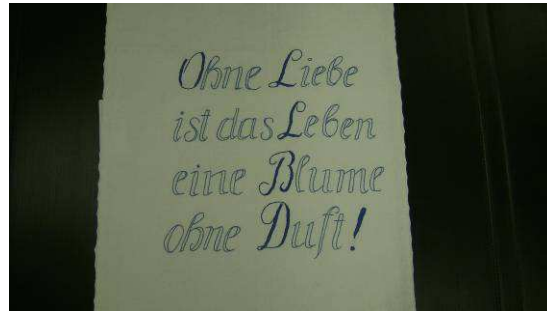 Ohne Liebe
ist das Leben
eine Blume
ohne Duft!